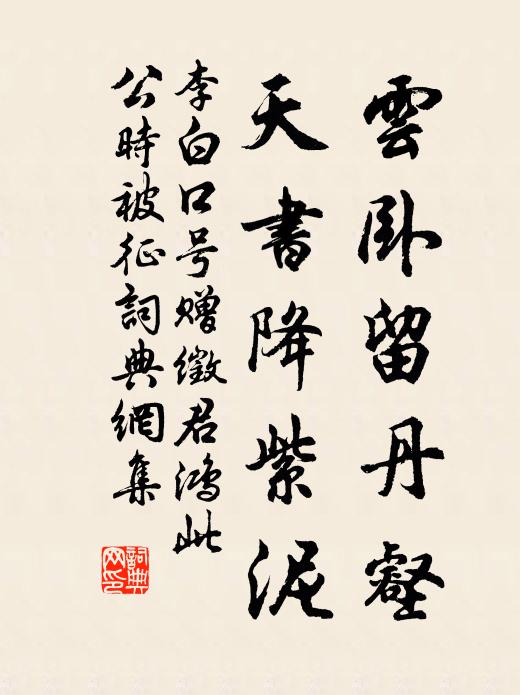 雲卧留丹壑
天書降紫泥
李白口号赠徵君鴻此
公時被征詞典網集
詞典网印